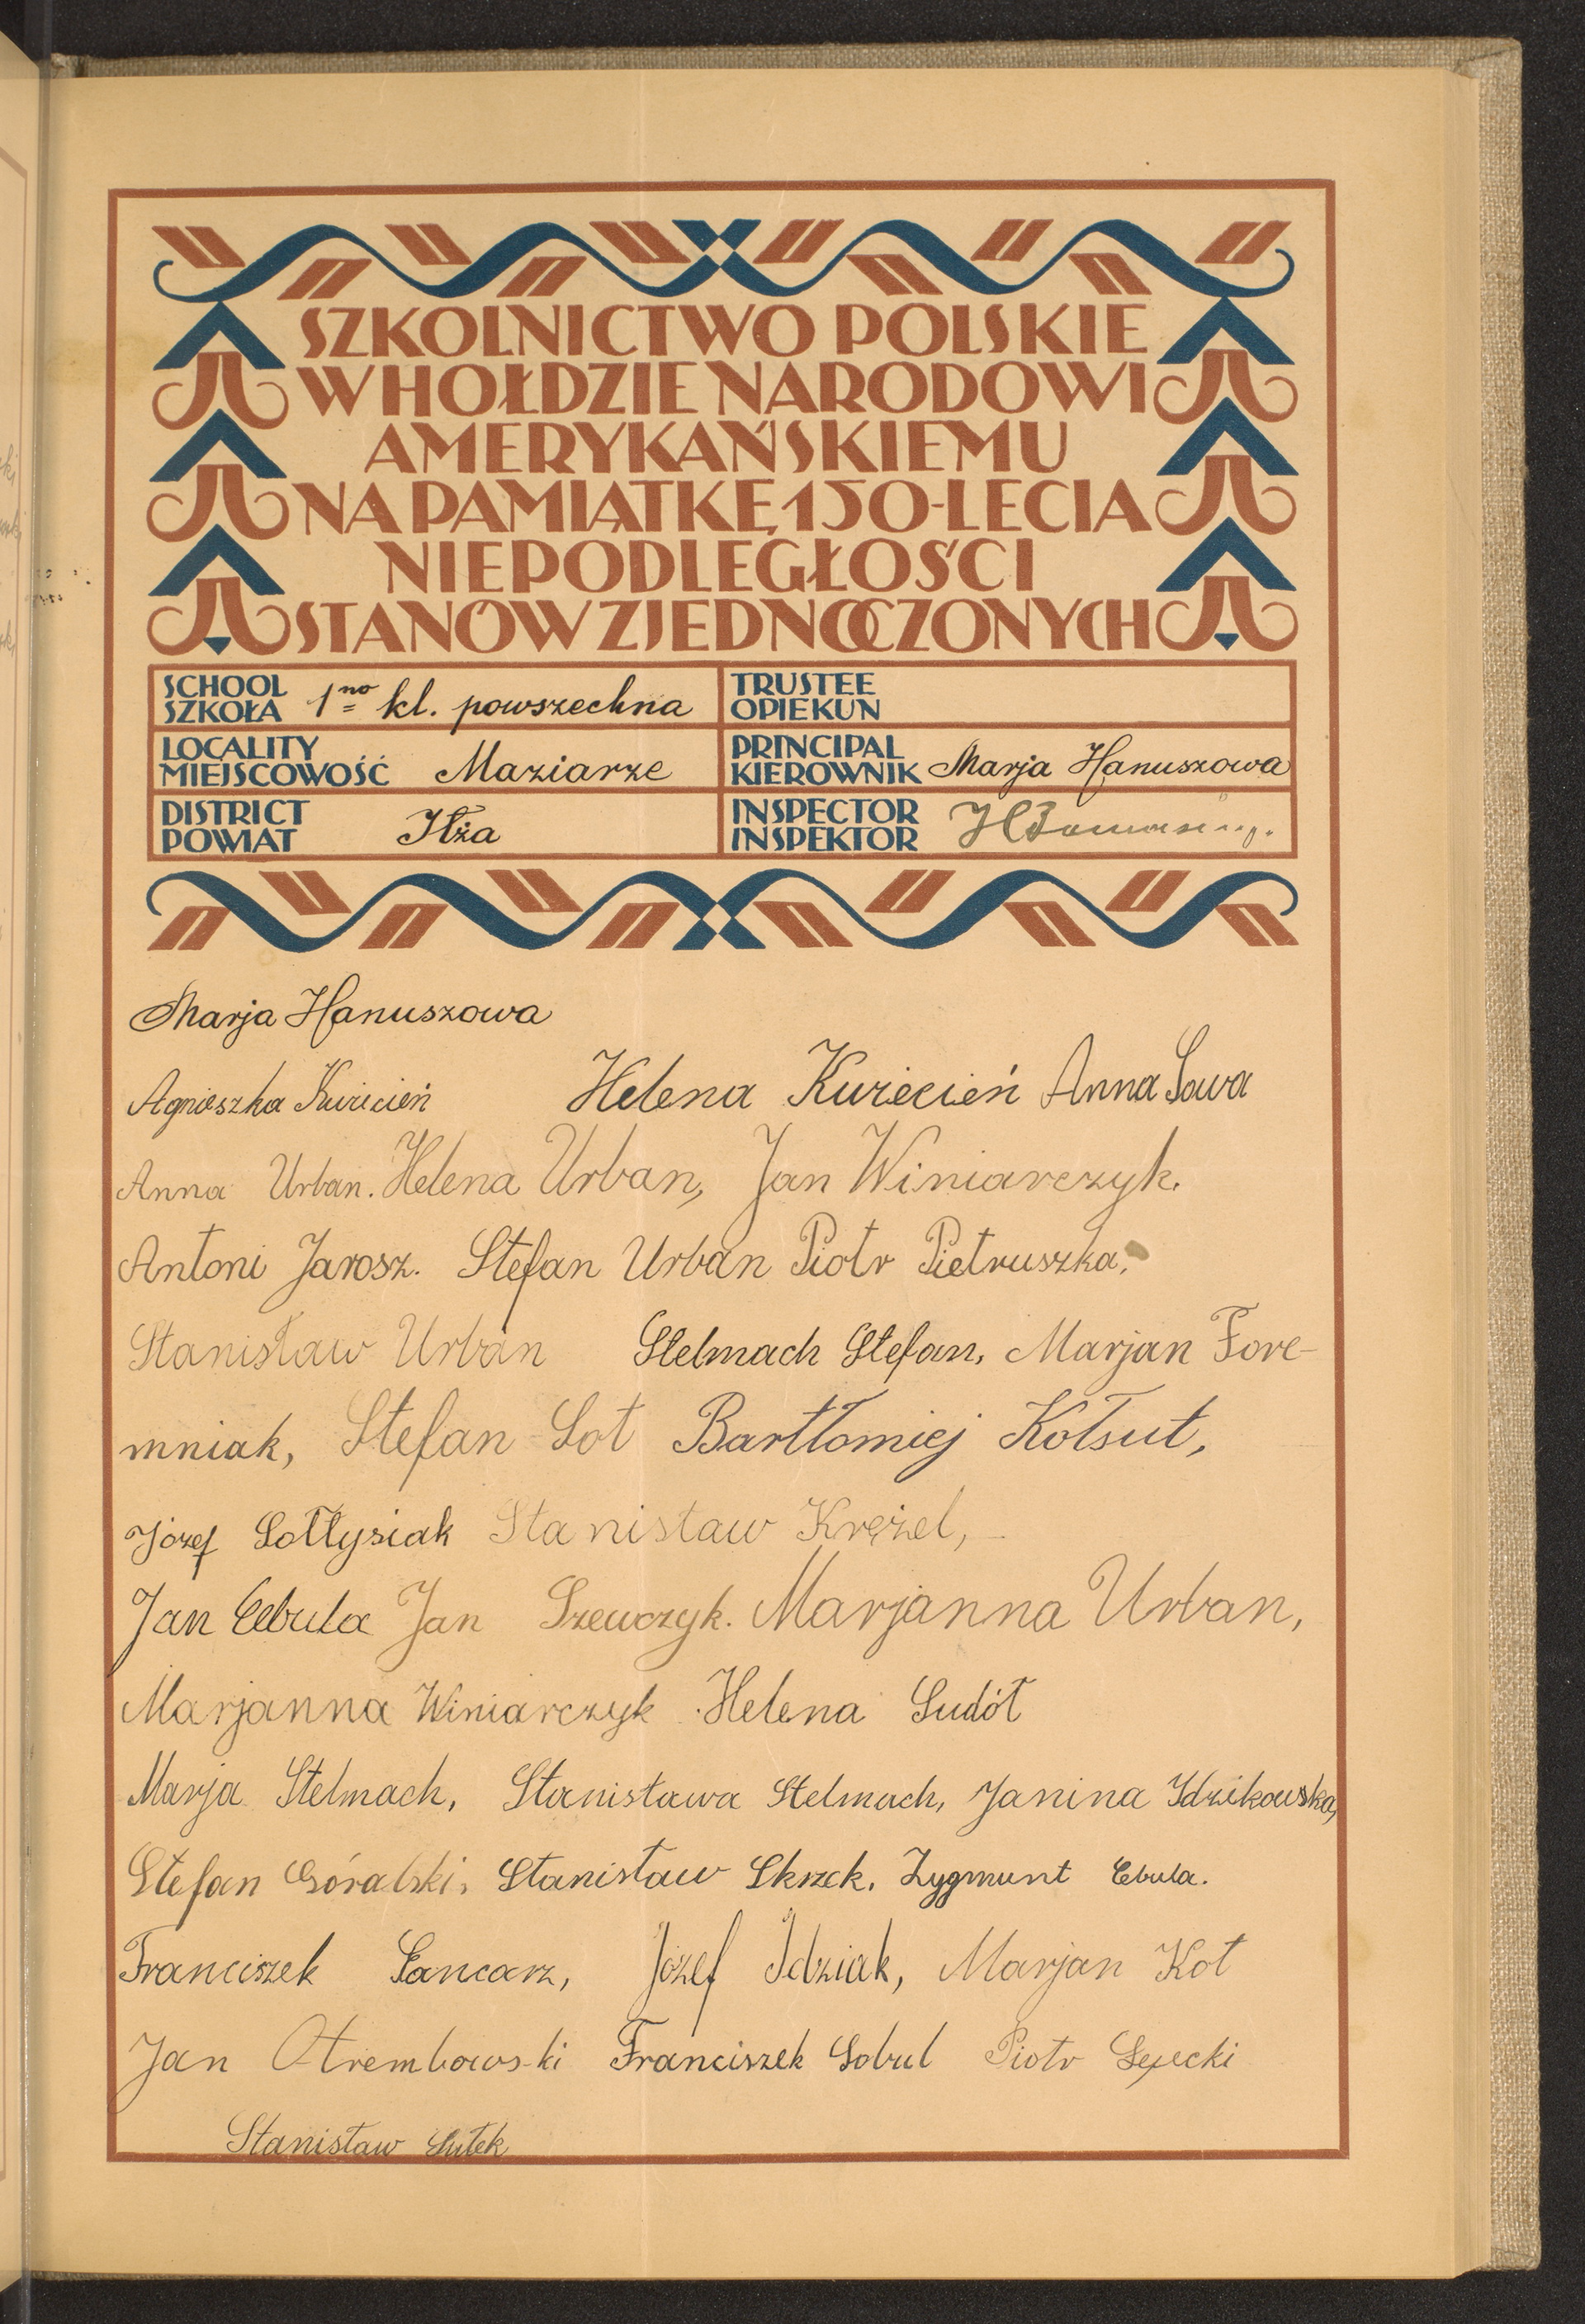 SZKOLNICTWO POLSKIE
W HOŁDZIE NARODOWI
AMERYKAŃSKIEMU
NA PAMIĄTKĘ 150-LECIA
NIEPODLEGŁOŚCI
STANÓW ZJEDNOCZONYCH
SCHOOL
SZKOŁA 1no kl. powszechna
TRUSTEE
OPIEKUN
LOCALITY
MIEJSCOWOŚĆ Maziarze
PRINCIPAL
KIEROWNIK Marja Hanuszowa
DISTRICT
POWIAT Iłża
INSPECTOR
INSPEKTOR
Marja Hanuszowa
Agnieszka Kwiecień Helena Kwiecień Anna Sowa
Anna Urban. Helena Urban, Jan Winiarczyk.
Antoni Jarosz. Stefan Urban Piotr Pietruszka.
Stanisław Urban Stelmach Stefan, Marjan Fore-
mniak, Stefan Sot Bartłomiej Kołsut,
Józef Sołtysiak Stanisław Krężel,
Jan Cebula Jan Szewczyk. Marjanna Urban,
Marjanna Winiarczyk Helena Sudół
Marja Stelmach, Stanisława Stelmach, Janina Idzikowska,
Stefan Góralski, Stanisław Skrzek. Zygmunt Cebula.
Franciszek Sancarz, Józef Idziak, Marjan Kot
Jan Otrembowski Franciszek Sobul Piotr
Stanisław Sutek